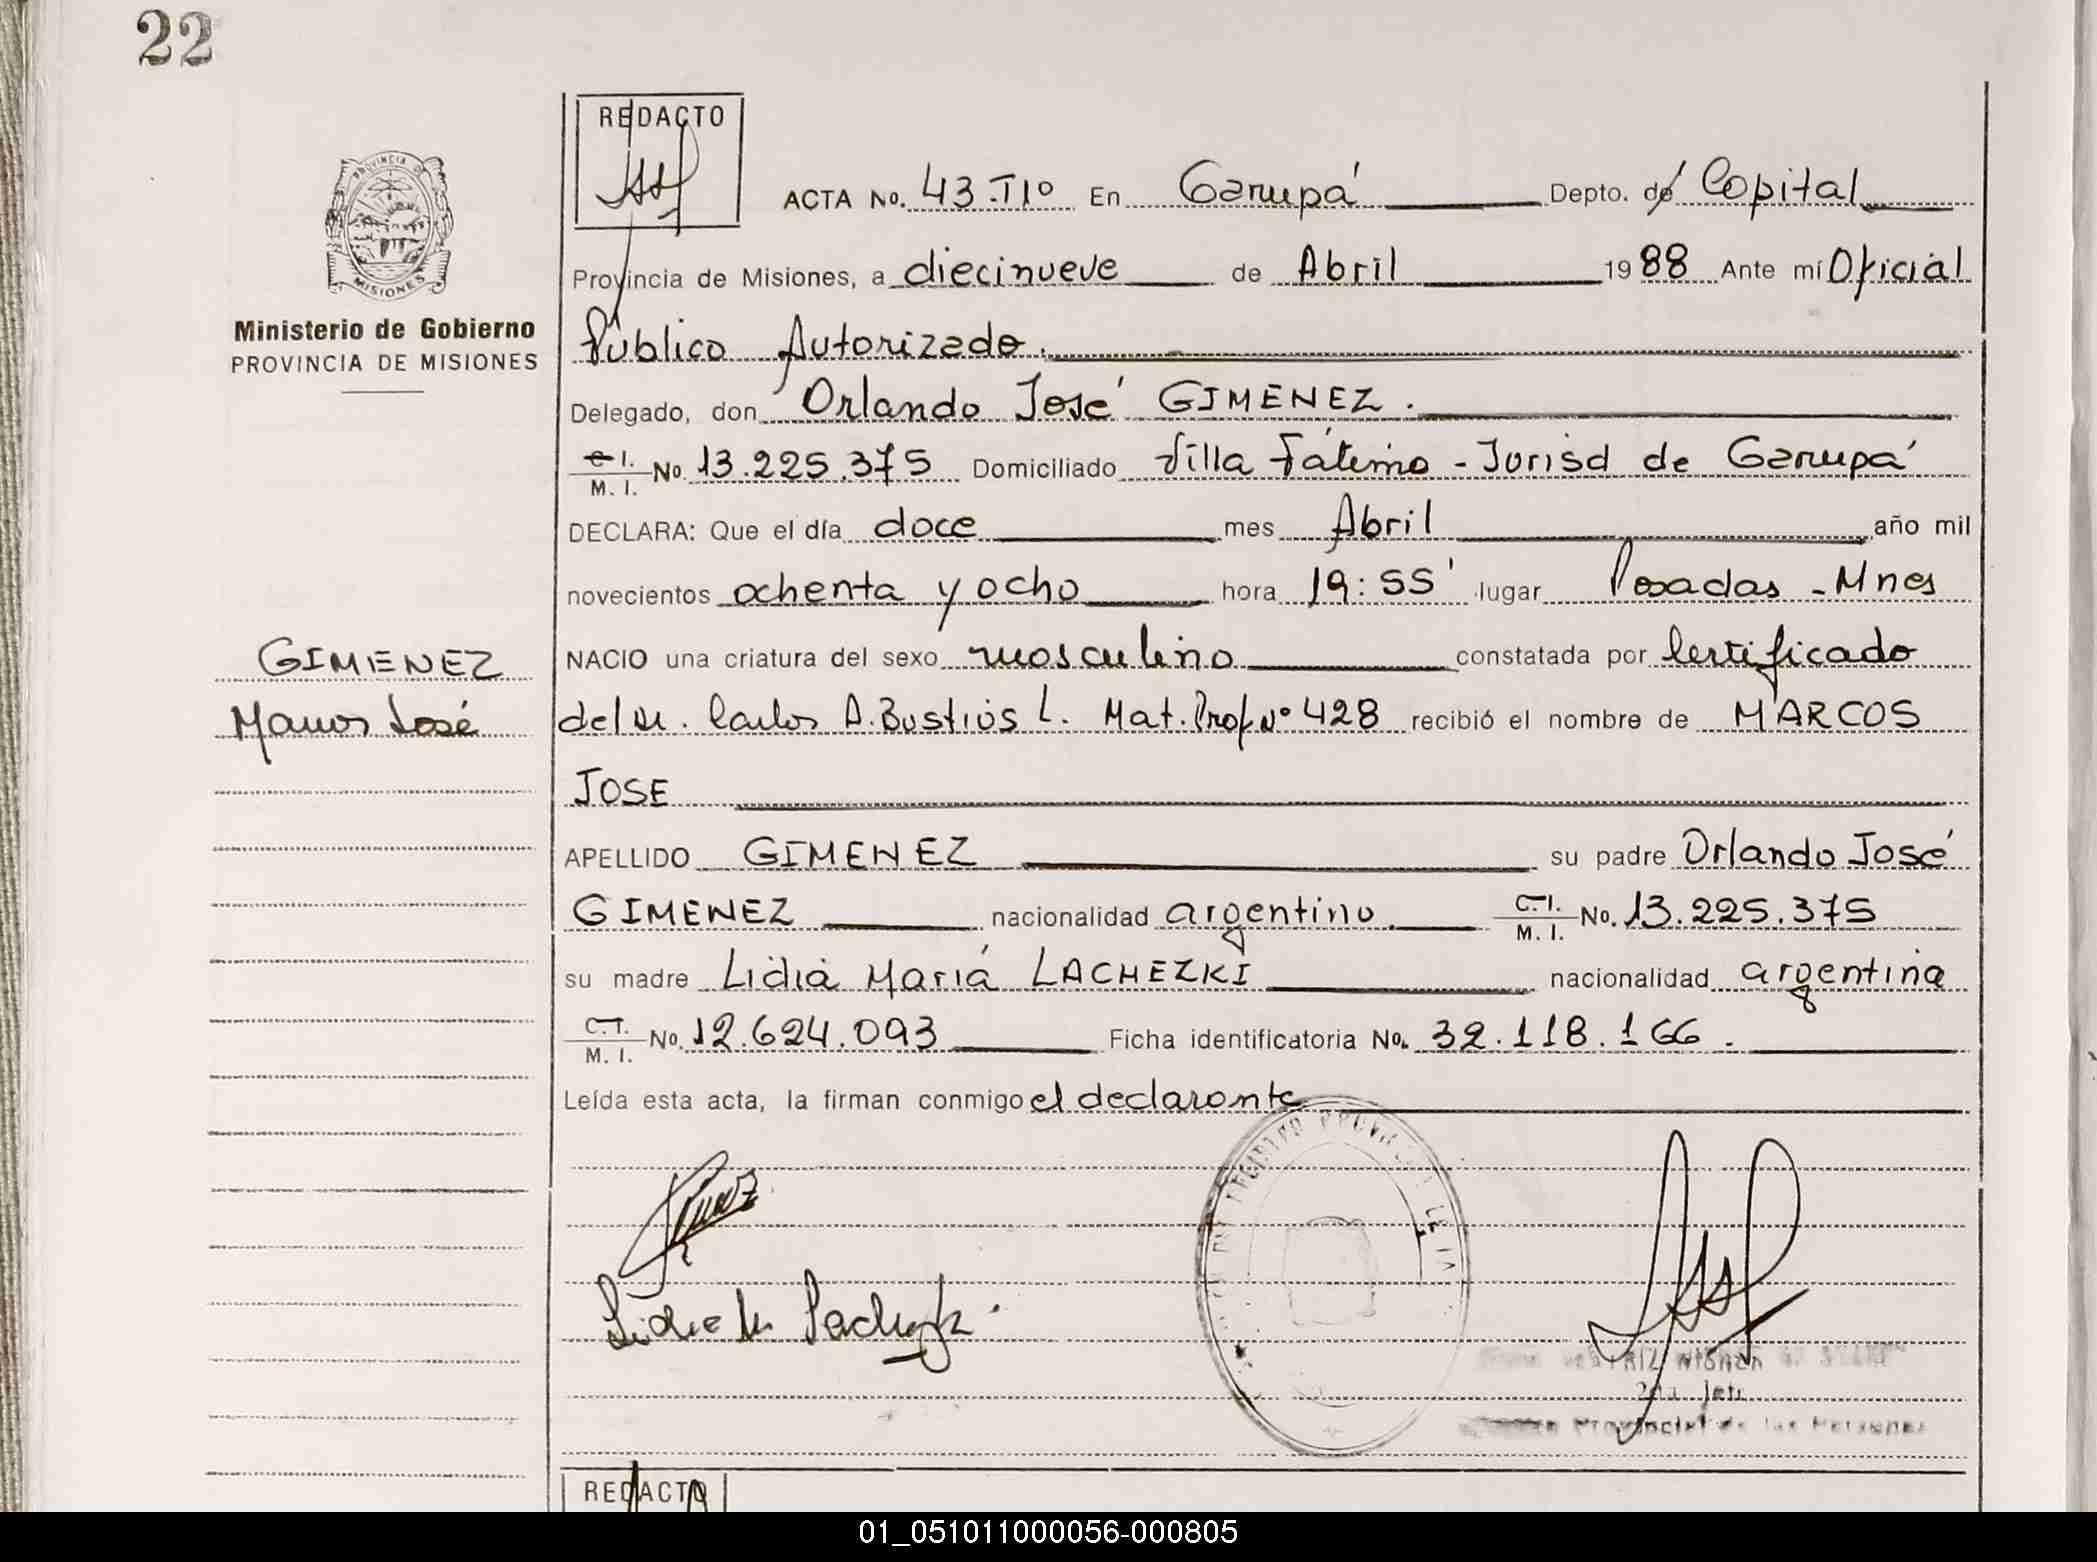 22
REDACTO
ACTA No. 43.TIº En Garupá Depto. de Capital
Provincia de Misiones, a diecinueve de Abril 1988 Ante mí Oficial
Público Autorizado.
Delegado, don Orlando José GIMENEZ.
C.I. M.I. No. 13.225.375 Domiciliado Villa Fátima - Jurisd de Garupá
DECLARA: Que el día doce mes Abril año mil
novecientos ochenta y ocho hora 19:55' lugar Posadas - Mnes
NACIO una criatura del sexo masculino constatada por Certificado
del Dr. Carlos A. Bustios L. Mat. Prof Nº 428 recibió el nombre de MARCOS
JOSE
APELLIDO GIMENEZ su padre Orlando José
GIMENEZ nacionalidad argentino C.I. M.I. No. 13.225.375
su madre Lidia María LACHEZKI nacionalidad argentina
C.I. M.I. No. 12.624.093 Ficha identificatoria No. 32.118.166.
Leída esta acta, la firman conmigo el declarante
MISIONES
Ministerio de Gobierno
PROVINCIA DE MISIONES
GIMENEZ
Marcos José
2da. Jefe
Provincial de las Personas
REDACTO
01_051011000056-000805